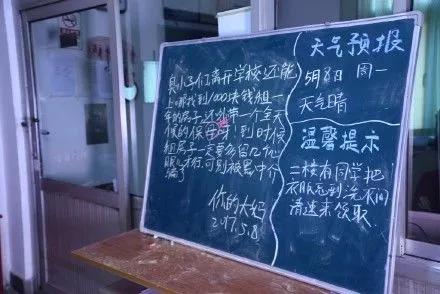 臭小子们离开学校还能
上哪找到1000块钱租一
年的房子还外带一个全天
候的保 呀！到时候
租房子一定要多留几只
眼儿才行，可别被黑中介
骗了
你的大妈
2017.5.8
天气预报
5月8日 周一
天气晴
温馨提示
二楼有同学把
衣服忘到洗衣间
请速来领取.